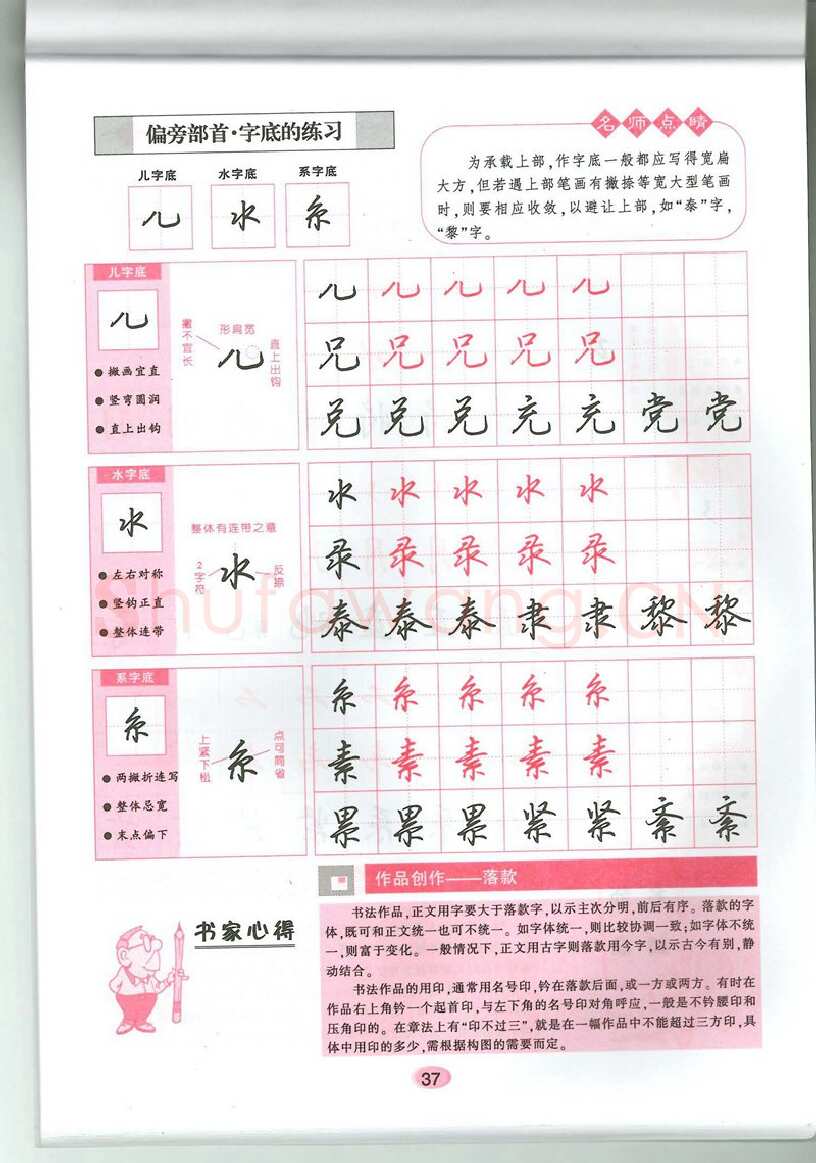 偏旁部首·字底的练习
名师点睛
儿字底 水字底 系字底
儿 水 糸
为承载上部,作字底一般都应写得宽扁
大方,但若遇上部笔画有撇捺等宽大型笔画
时,则要相应收敛,以避让上部,如“泰”字,
“黎”字。
儿字底
儿
撇画宜直
竖弯圆润
直上出钩
形肩宽
撇不宜长
儿
直上出钩
儿 儿 儿 儿 儿
兄 兄 兄 兄 兄
兑 兑 兑 充 充 党 党
水字底
水
左右对称
竖钩正直
整体连带
整体有连带之意
2字符
水
反捺
水 水 水 水 水
录 录 录 录 录
泰 泰 泰 隶 隶 黎 黎
系字底
糸
两撇折连写
整体忌宽
末点偏下
上紧下松
糸
点可简省
糸 糸 糸 糸 糸
素 素 素 素 素
累 累 累 紧 紧 紊 紊
作品创作——落款
书家心得
书法作品,正文用字要大于落款字,以示主次分明,前后有序。落款的字
体,既可和正文统一也可不统一。如字体统一,则比较协调一致;如字体不统
一,则富于变化。一般情况下,正文用古字则落款用今字,以示古今有别,静
动结合。
书法作品的用印,通常用名号印,钤在落款后面,或一方或两方。有时在
作品右上角钤一个起首印,与左下角的名号印对角呼应,一般是不钤腰印和
压角印的。在章法上有“印不过三”,就是在一幅作品中不能超过三方印,具
体中用印的多少,需根据构图的需要而定。
37
Shufawang.CN